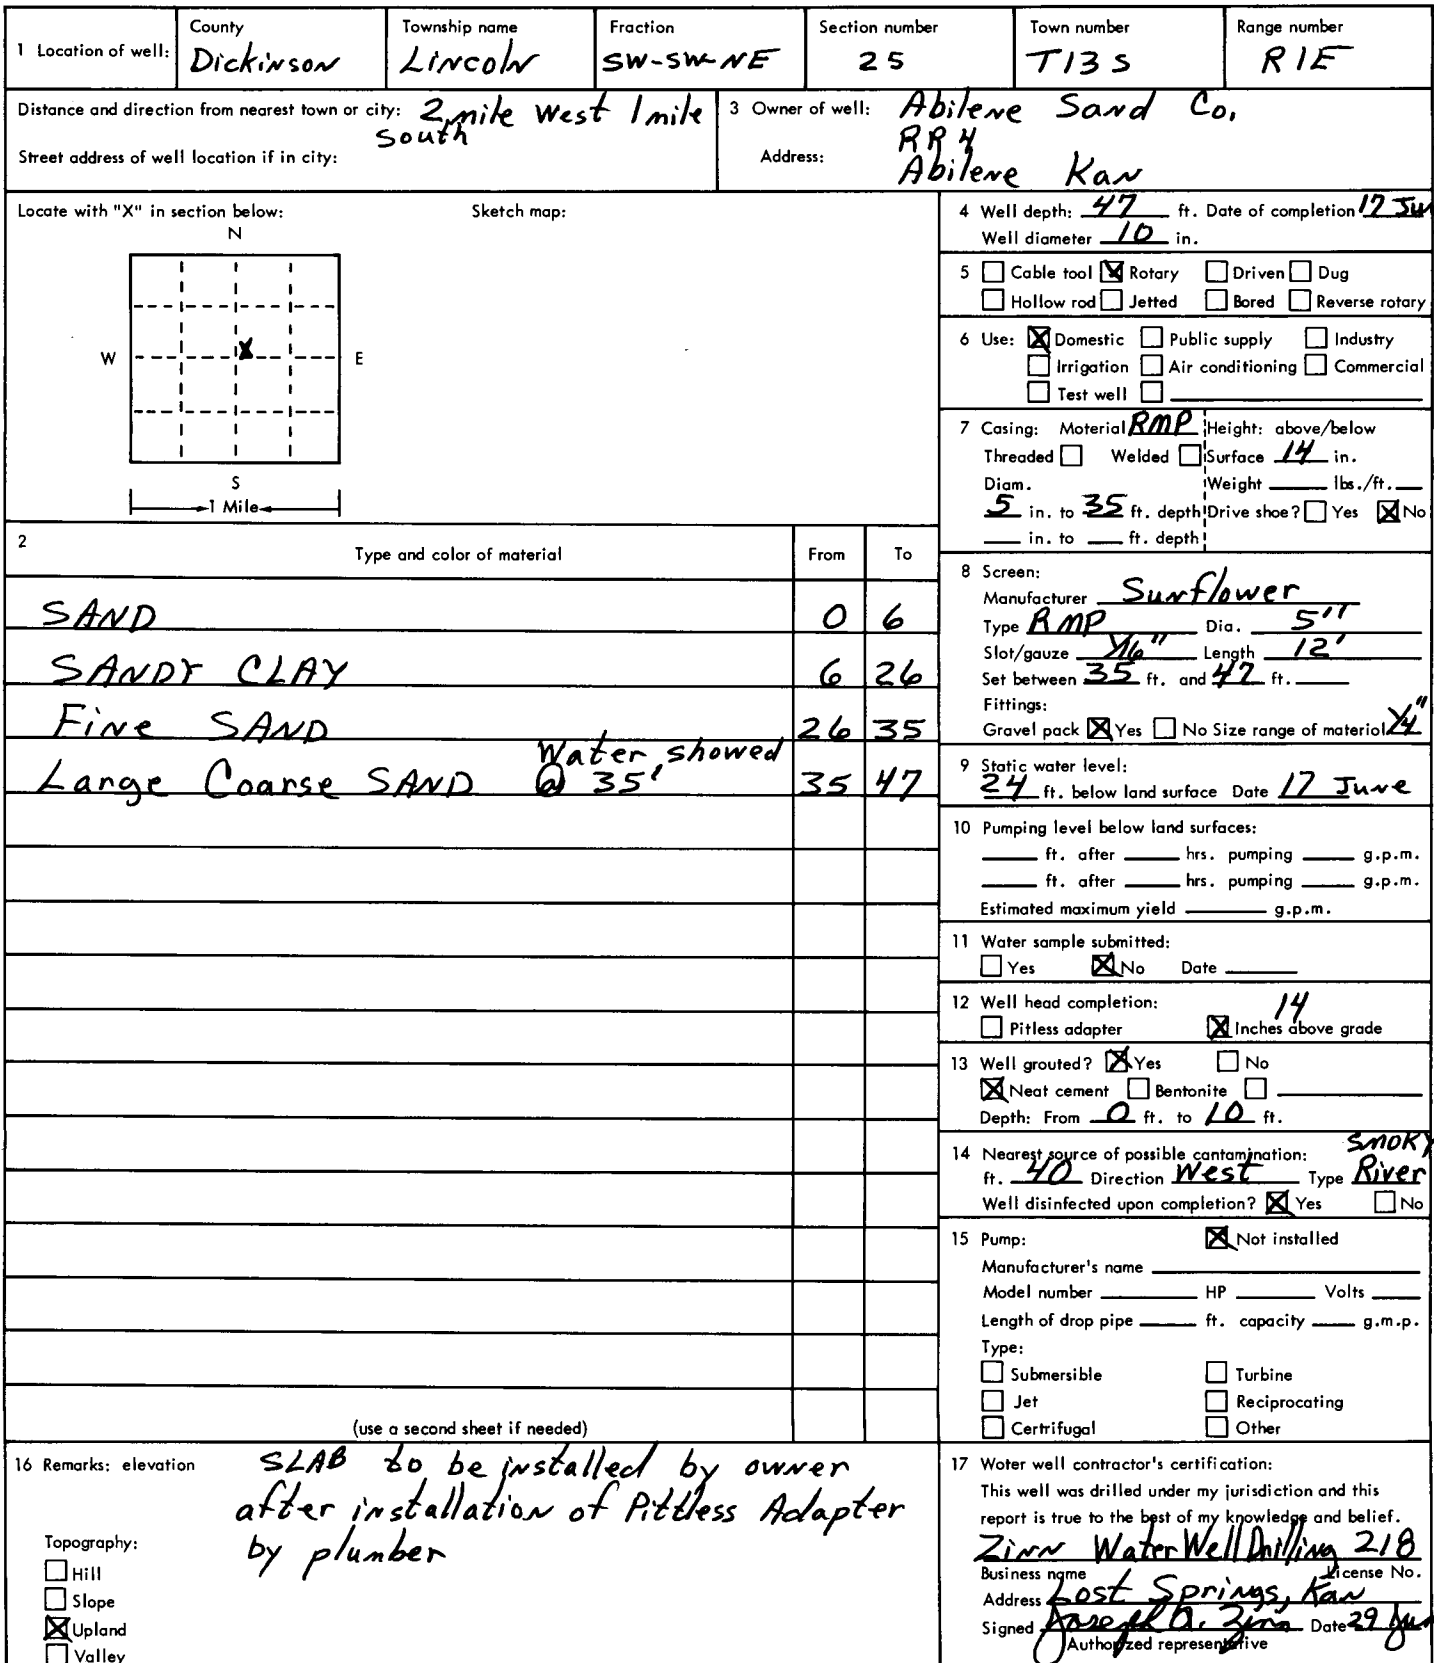 1 Location of well:
County
Dickinson
Township name
Lincoln
Fraction
SW-SW-NE
Section number
25
Town number
T13S
Range number
R1E
Distance and direction from nearest town or city: 2 mile West 1 mile
South
Street address of well location if in city:
3 Owner of well: Abilene Sand Co.
RR 4
Address:
Abilene Kan
Locate with "X" in section below:
Sketch map:
N
W
X
E
S
1 Mile
2
Type and color of material From To
SAND 0 6
SANDY CLAY 6 26
Fine SAND 26 35
Water showed
Large Coarse SAND @ 35' 35 47
(use a second sheet if needed)
4 Well depth: 47 ft. Date of completion 17 Jun
Well diameter 10 in.
5 Cable tool X Rotary Driven Dug
Hollow rod Jetted Bored Reverse rotary
6 Use: X Domestic Public supply Industry
Irrigation Air conditioning Commercial
Test well
7 Casing: Material RMP Height: above/below
Threaded Welded Surface 14 in.
Diam. Weight lbs./ft.
5 in. to 35 ft. depth Drive shoe? Yes X No
in. to ft. depth
8 Screen:
Manufacturer Sunflower
Type RMP Dia. 5"
Slot/gauze 1/16" Length 12'
Set between 35 ft. and 47 ft.
Fittings:
Gravel pack X Yes No Size range of material 1/4"
9 Static water level:
24 ft. below land surface Date 17 June
10 Pumping level below land surfaces:
ft. after hrs. pumping g.p.m.
ft. after hrs. pumping g.p.m.
Estimated maximum yield g.p.m.
11 Water sample submitted:
Yes X No Date
12 Well head completion: 14
Pitless adapter X Inches above grade
13 Well grouted? X Yes No
X Neat cement Bentonite
Depth: From 0 ft. to 10 ft.
14 Nearest source of possible cantamination: SMOKY
ft. 40 Direction West Type River
Well disinfected upon completion? X Yes No
15 Pump: X Not installed
Manufacturer's name
Model number HP Volts
Length of drop pipe ft. capacity g.m.p.
Type:
Submersible Turbine
Jet Reciprocating
Certrifugal Other
16 Remarks: elevation SLAB to be installed by owner
after installation of Pittless Adapter
by plumber
Topography:
Hill
Slope
X Upland
Valley
17 Woter well contractor's certification:
This well was drilled under my jurisdiction and this
report is true to the best of my knowledge and belief.
Zinn Water Well Drilling 218
Business name License No.
Address Lost Springs, Kan
Signed Joseph A. Zinn Date 29 Jun
Authorized representative